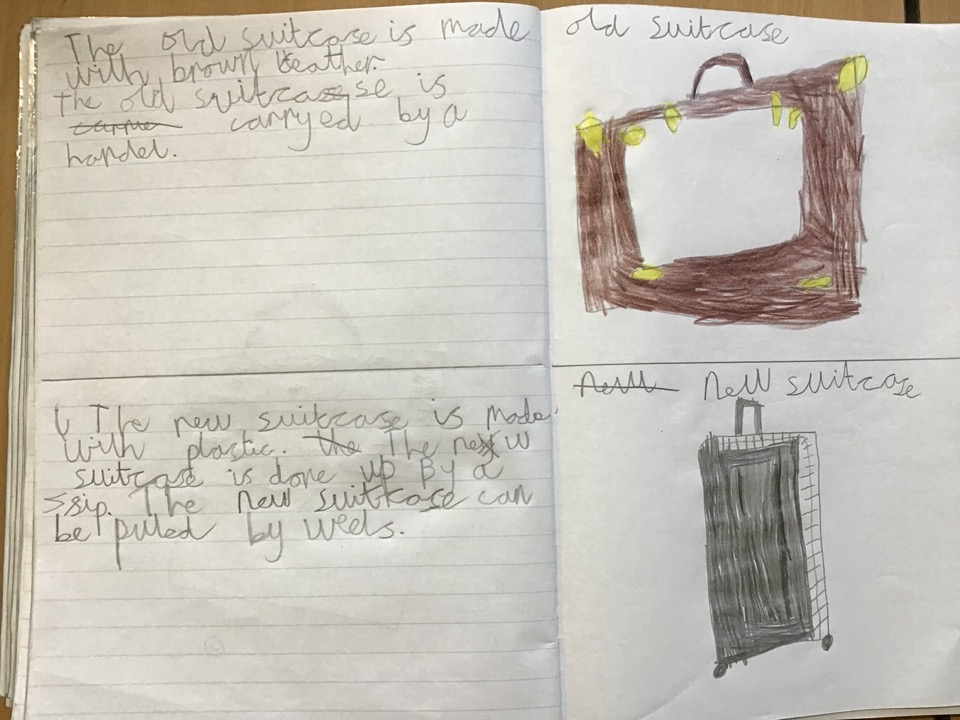 The old suitcase is made
with brown leather.
The old suitcase is
carryed by a
handel.
old suitcase
The new suitcase is made
with plastic. the The new
suitcase is done up By a
ssip. The new suitkase can
be puled by weels.
new new suitcase